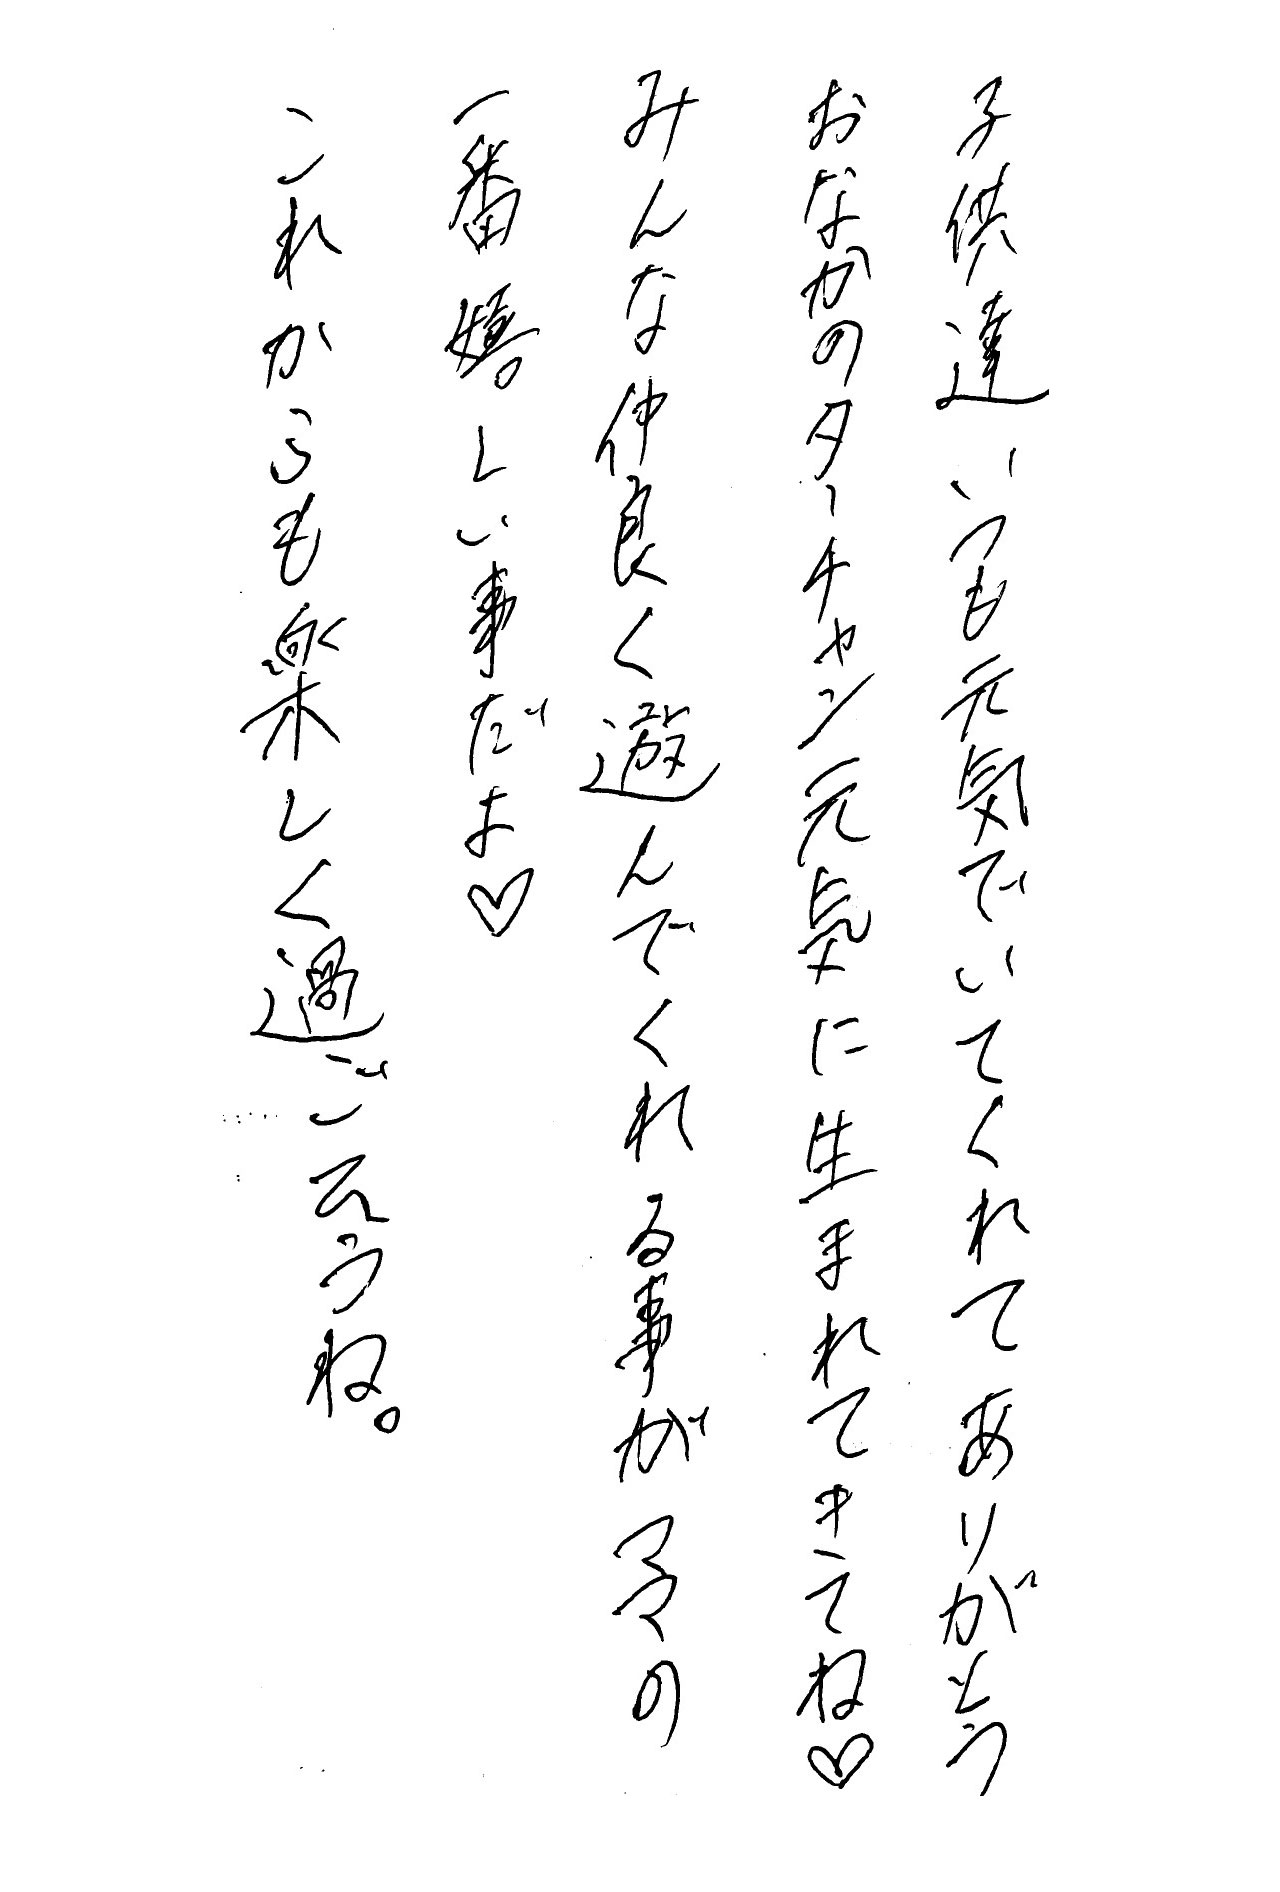 子供達いつも元気でいてくれてありがとう
おなかのターチャン元気に生まれてきてね♡
みんな仲良く遊んでくれる事がママの
一番嬉しい事だよ♡
これからも楽しく過ごそうね。